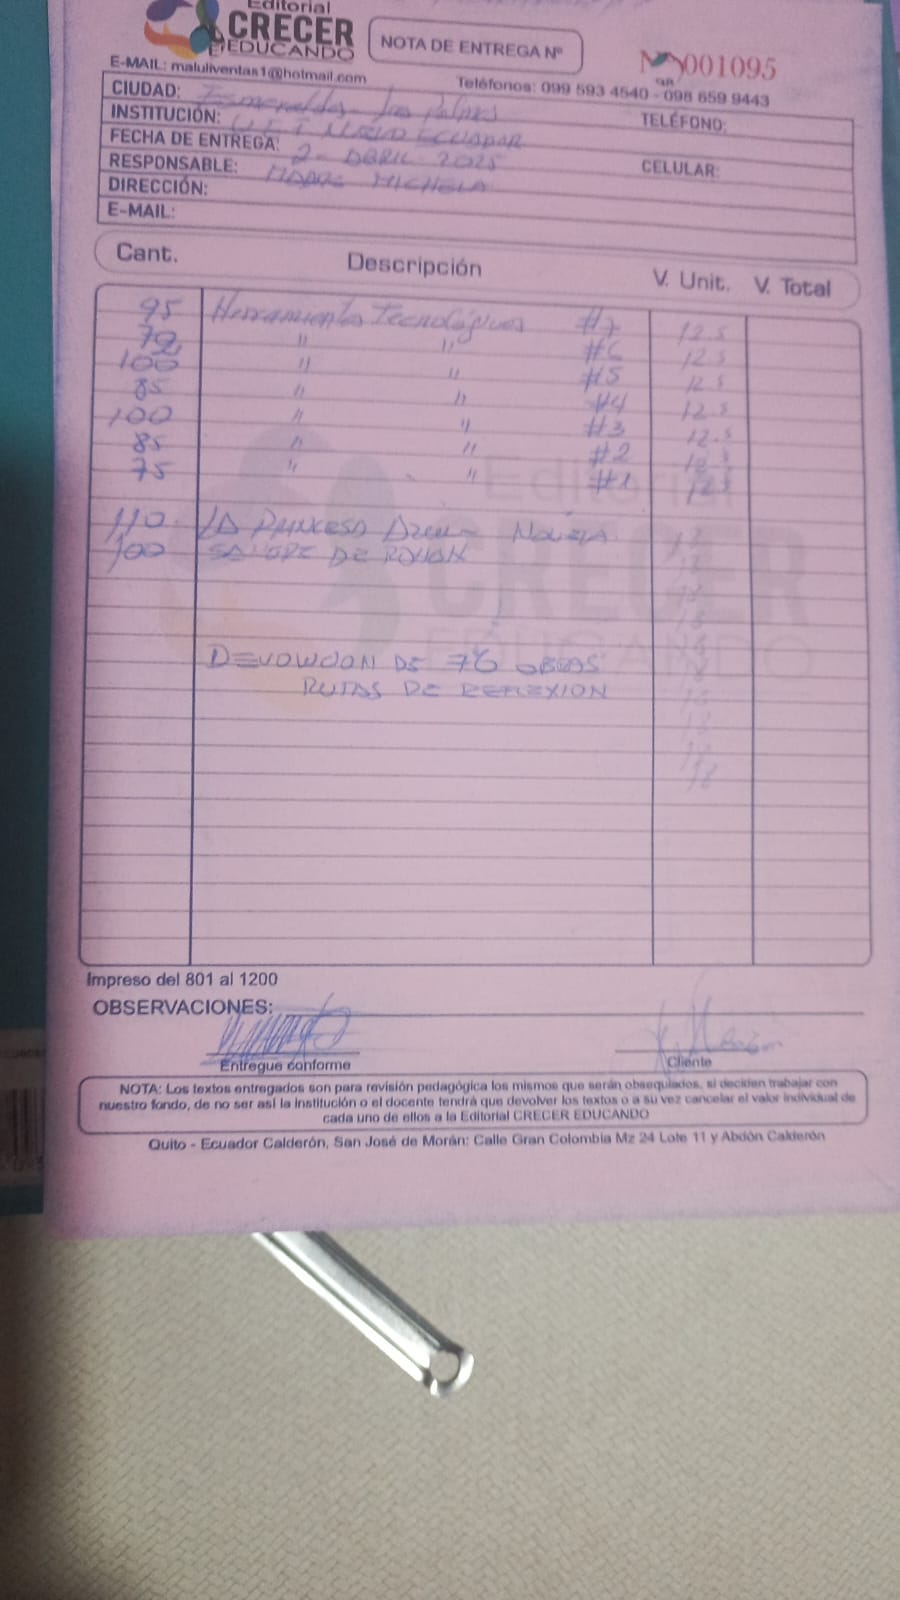 Editorial
CRECER
EDUCANDO
NOTA DE ENTREGA Nº
001095
E-MAIL: maluliventas1@hotmail.com
Teléfonos: 099 593 4540 - 098 659 9443
CIUDAD: Esmeraldas - Las Palmas
TELÉFONO:
INSTITUCIÓN: NUEVO ECUADOR
FECHA DE ENTREGA: 2 - ABRIL 2025
CELULAR:
RESPONSABLE: MADRE MICHELA
DIRECCIÓN:
E-MAIL:
Cant. Descripción V. Unit. V. Total
95 Herramientas Tecnológicas #7 12.5
72 " " #6 12.5
100 " " #5 12.5
85 " " #4 12.5
100 " " #3 12.5
85 " " #2 12.5
75 " " #1 12.5
110 LA PRINCESA NOVELA 12
100 SANGRE DE
DEVOLUCION DE 76 OBRAS
RUTAS DE REFLEXION
Editorial
CRECER
EDUCANDO
Impreso del 801 al 1200
OBSERVACIONES:
Entregue conforme
Cliente
NOTA: Los textos entregados son para revisión pedagógica los mismos que serán obsequiados, si deciden trabajar con
nuestro fondo, de no ser así la Institución o el docente tendrá que devolver los textos o a su vez cancelar el valor individual de
cada uno de ellos a la Editorial CRECER EDUCANDO
Quito - Ecuador Calderón, San José de Morán: Calle Gran Colombia Mz 24 Lote 11 y Abdón Calderón